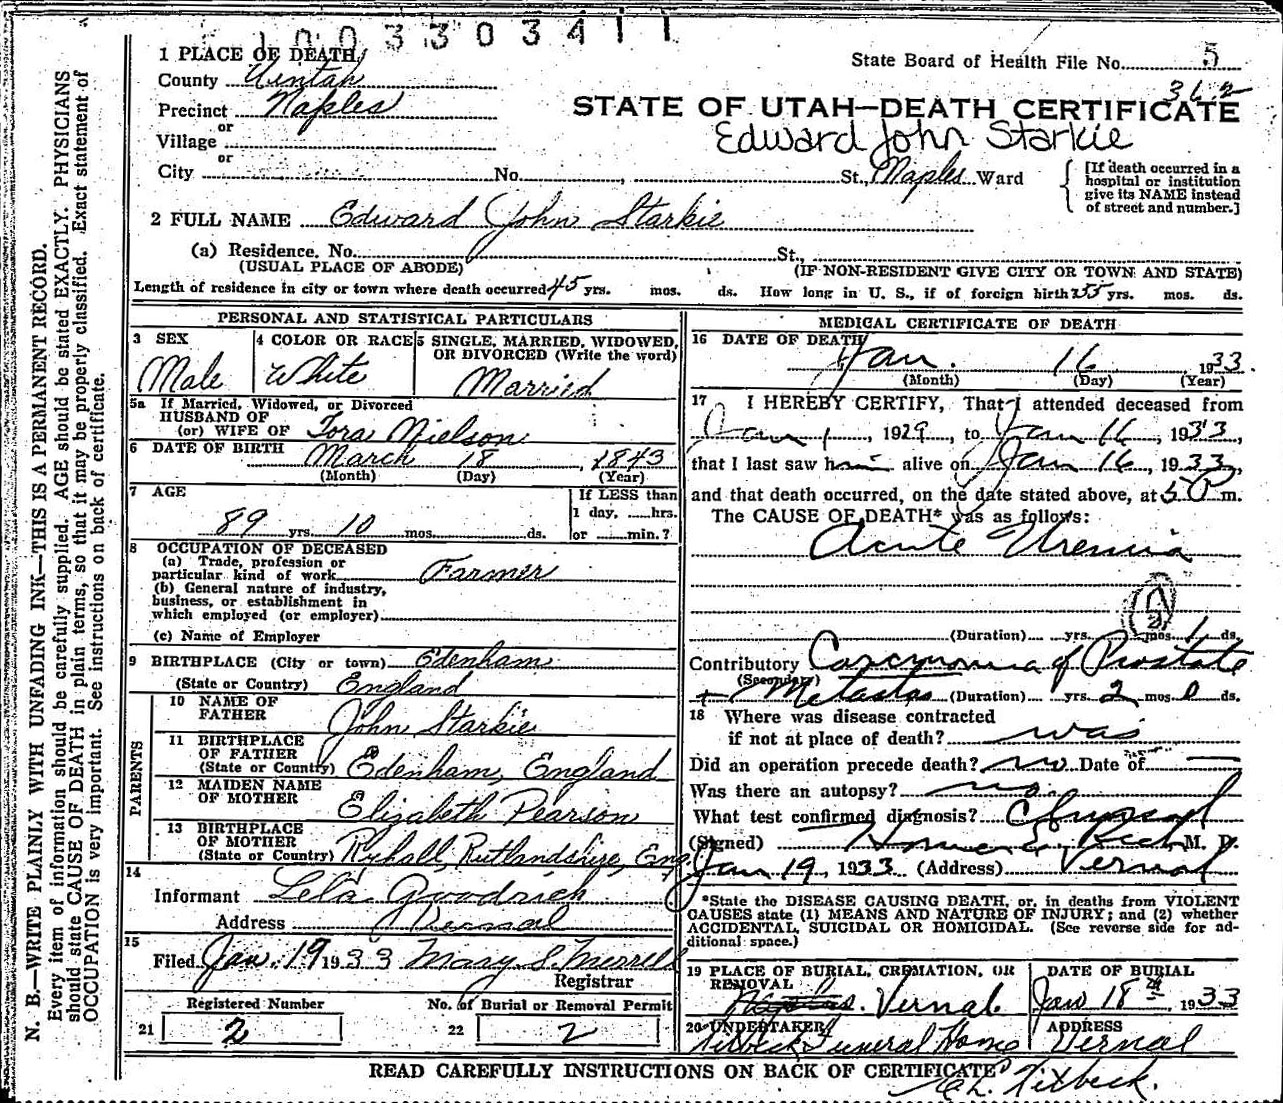 1003303411
1 PLACE OF DEATH
County Uintah
Precinct Naples
or
Village
or
City No. St., Naples Ward
State Board of Health File No. 5
362
STATE OF UTAH—DEATH CERTIFICATE
Edward John Starkie
[If death occurred in a
hospital or institution
give its NAME instead
of street and number.]
2 FULL NAME Edward John Starkie
(a) Residence. No. St.,
(USUAL PLACE OF ABODE) (IF NON-RESIDENT GIVE CITY OR TOWN AND STATE)
Length of residence in city or town where death occurred 45 yrs. mos. ds. How long in U. S., if of foreign birth? 55 yrs. mos. ds.
PERSONAL AND STATISTICAL PARTICULARS
3 SEX
Male
4 COLOR OR RACE
White
5 SINGLE, MARRIED, WIDOWED,
OR DIVORCED (Write the word)
Married
5a If Married, Widowed, or Divorced
HUSBAND OF
(or) WIFE OF Tora Nielson
6 DATE OF BIRTH March 18, 1843
(Month) (Day) (Year)
7 AGE
89 yrs. 10 mos. ds.
If LESS than
1 day, hrs.
or min.?
8 OCCUPATION OF DECEASED
(a) Trade, profession or
particular kind of work Farmer
(b) General nature of industry,
business, or establishment in
which employed (or employer)
(c) Name of Employer
9 BIRTHPLACE (City or town) Edenham
(State or Country) England
PARENTS
10 NAME OF
FATHER John Starkie
11 BIRTHPLACE
OF FATHER
(State or Country) Edenham, England
12 MAIDEN NAME
OF MOTHER Elizabeth Pearson
13 BIRTHPLACE
OF MOTHER
(State or Country) Ryhall, Rutlandshire, Eng.
14
Informant Lela Goodrich
Address Vernal
15
Filed Jan. 19 1933 Mary S. Merrell
Registrar
Registered Number No. of Burial or Removal Permit
21 2 22 2
MEDICAL CERTIFICATE OF DEATH
16 DATE OF DEATH
Jan. 16, 1933.
(Month) (Day) (Year)
17 I HEREBY CERTIFY, That I attended deceased from
Jan 1, 1929, to Jan 16, 1933,
that I last saw him alive on Jan 16, 1933,
and that death occurred, on the date stated above, at 5 P m.
The CAUSE OF DEATH* was as follows:
Acute Uremia
(Duration) yrs. mos. 1 ds.
Contributory Carcynomia of Prostate
(Secondary)
+ Metastas (Duration) yrs. 2 mos. 0 ds.
18 Where was disease contracted
if not at place of death? was
Did an operation precede death? no Date of
Was there an autopsy? no.
What test confirmed diagnosis?
(Signed) Homer E. Rich M. D.
Jan 19, 1933 (Address) Vernal
*State the DISEASE CAUSING DEATH, or, in deaths from VIOLENT
CAUSES state (1) MEANS AND NATURE OF INJURY; and (2) whether
ACCIDENTAL, SUICIDAL OR HOMICIDAL. (See reverse side for ad-
ditional space.)
19 PLACE OF BURIAL, CREMATION, OR
REMOVAL
Vernal
DATE OF BURIAL
Jan 18th, 1933
20 UNDERTAKER
Funeral Home
ADDRESS
Vernal
READ CAREFULLY INSTRUCTIONS ON BACK OF CERTIFICATE
N. B.—WRITE PLAINLY WITH UNFADING INK—THIS IS A PERMANENT RECORD.
Every item of information should be carefully supplied. AGE should be stated EXACTLY. PHYSICIANS
should state CAUSE OF DEATH in plain terms, so that it may be properly classified. Exact statement of
OCCUPATION is very important. See instructions on back of certificate.